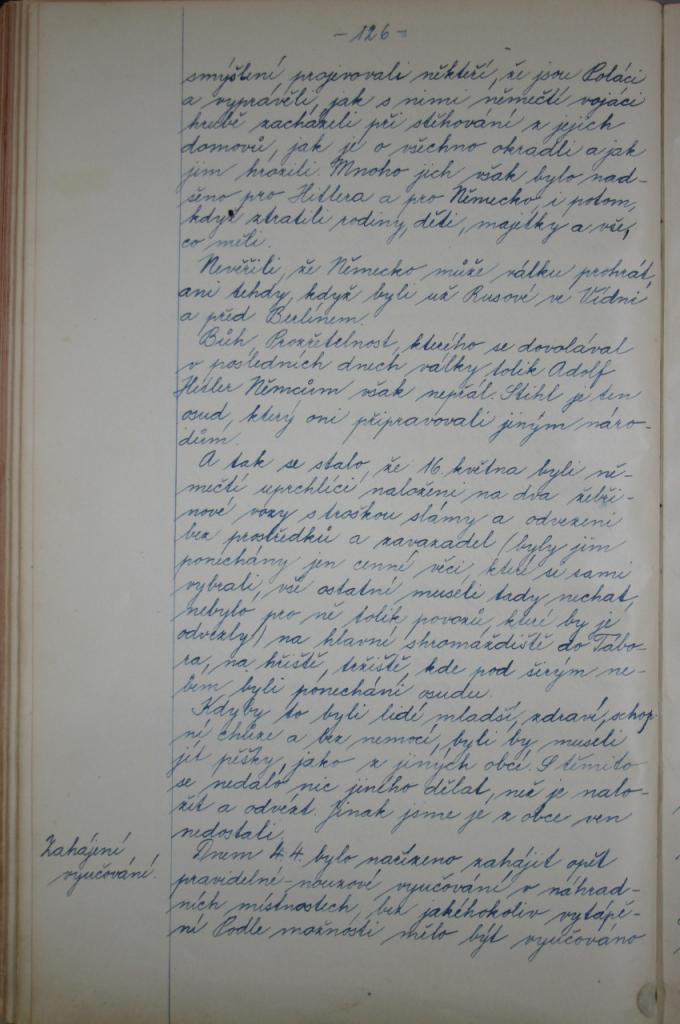 - 126 -
smýšlení projevovali někteří, že jsou Poláci
a vyprávěli, jak s nimi němečtí vojáci
hrubě zacházeli při stěhování z jejich
domovů, jak je o všechno okradli a jak
jim hrozili. Mnoho jich však bylo nad-
šeno pro Hitlera a pro Německo, i potom,
když ztratili rodiny, děti, majetky a vše,
co měli.
Nevěřili, že Německo může válku prohrát,
ani tehdy, když byli už Rusové ve Vídni
a před Berlínem.
Bůh, Prozřetelnost, kterého se dovolával
v posledních dnech války tolik Adolf
Hitler Němcům však nepřál. Stihl je ten
osud, který oni připravovali jiným náro-
dům.
A tak se stalo, že 16. května byli ně-
mečtí uprchlíci naloženi na dva žebři-
nové vozy s troškou slámy a odvezeni
bez prostředků a zavazadel (byly jim
ponechány jen cenné věci které si sami
vybrali, vše ostatní museli tady nechat,
nebylo pro ně tolik povozů, které by je
odvezly) na hlavní shromáždiště do Tábo-
ra, na hřiště, tržiště, kde pod širým ne-
bem byli ponecháni osudu.
Kdyby to byli lidé mladší, zdraví, schop-
ní chůze a bez nemocí, byli by museli
jít pěšky, jako z jiných obcí. S těmito
se nedalo nic jiného dělat, než je nalo-
žit a odvézt. Jinak jsme je z obce ven
nedostali.
Zahájení
vyučování.
Dnem 4.4. bylo nařízeno zahájit opět
pravidelné-nouzové vyučování v náhrad-
ních místnostech, bez jakéhokoliv vytápě-
ní. Podle možnosti mělo být vyučováno